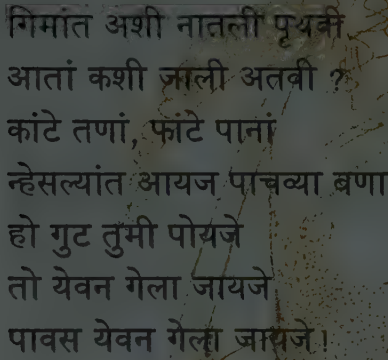 गिमांत अशी नातली पृथवी,
आतां कशी जाली अतवी ?
कांटे तणां, फांटे पानां
न्हेसल्यांत आयज पाचव्या बणा
हो गुट तुमी पोयजे
तो येवन गेला जायजे
पावस येवन गेला जायजे !